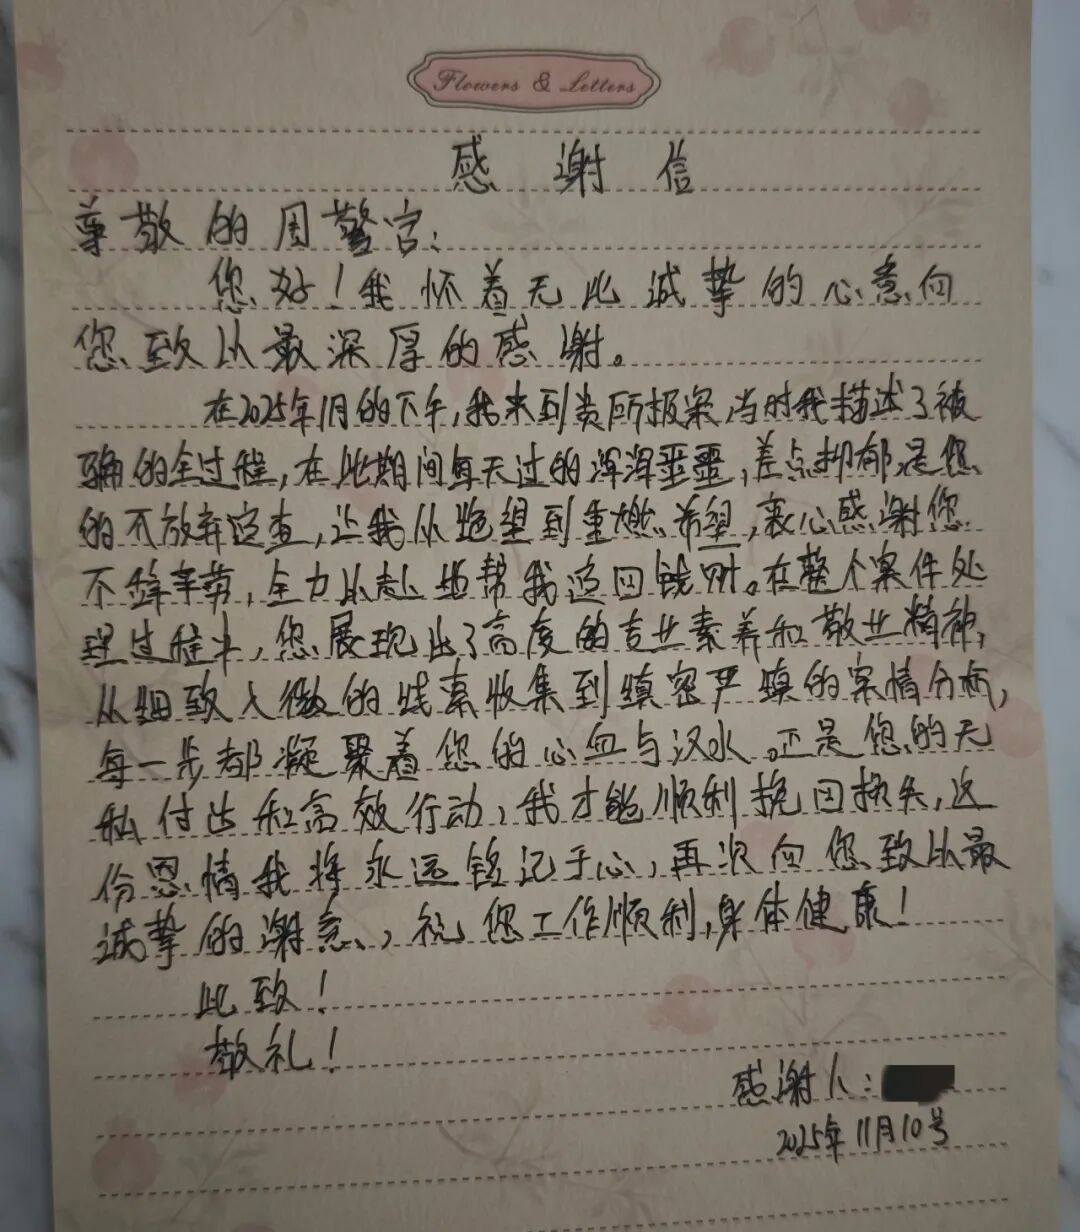 Flowers & Letters
感谢信
尊敬的周警官:
您好!我怀着无比诚挚的心意向
您致以最深厚的感谢。
在2025年1月的下午,我来到贵所报案,当时我描述了被
骗的全过程,在此期间每天过的浑浑噩噩,差点抑郁是您
的不放弃追查,让我从绝望到重燃希望,衷心感谢您
不辞辛劳,全力以赴地帮我追回钱财。在整个案件处
理过程中,您展现出了高度的专业素养和敬业精神,
从细致入微的线索收集到缜密严慎的案情分析,
每一步都凝聚着您的心血与汉水。正是您的无
私付出和高效行动,我才能顺利挽回损失,这
份恩情我将永远铭记于心,再次向您致以最
诚挚的谢意,祝您工作顺利,身体健康!
此致!
敬礼!
感谢人:
2025年11月10号